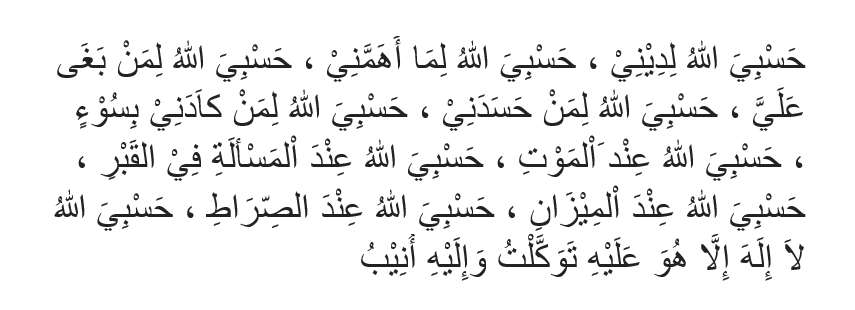 حَسْبِيَ اللهُ لِدِيْنِيْ ، حَسْبِيَ اللهُ لِمَا أَهَمَّنِيْ ، حَسْبِيَ اللهُ لِمَنْ بَغَى
عَلَيَّ ، حَسْبِيَ اللهُ لِمَنْ حَسَدَنِيْ ، حَسْبِيَ اللهُ لِمَنْ كاَدَنِيْ بِسُوْءٍ
، حَسْبِيَ اللهُ عِنْد َاْلمَوْتِ ، حَسْبِيَ اللهُ عِنْدَ اْلمَسْألَةِ فِيْ القَبْرِ ،
حَسْبِيَ اللهُ عِنْدَ اْلمِيْزَانِ ، حَسْبِيَ اللهُ عِنْدَ الصِّرَاطِ ، حَسْبِيَ اللهُ
لاَ إِلَهَ إِلَّا هُوَ عَلَيْهِ تَوَكَّلْتُ وَإِلَيْهِ أُنِيْبُ